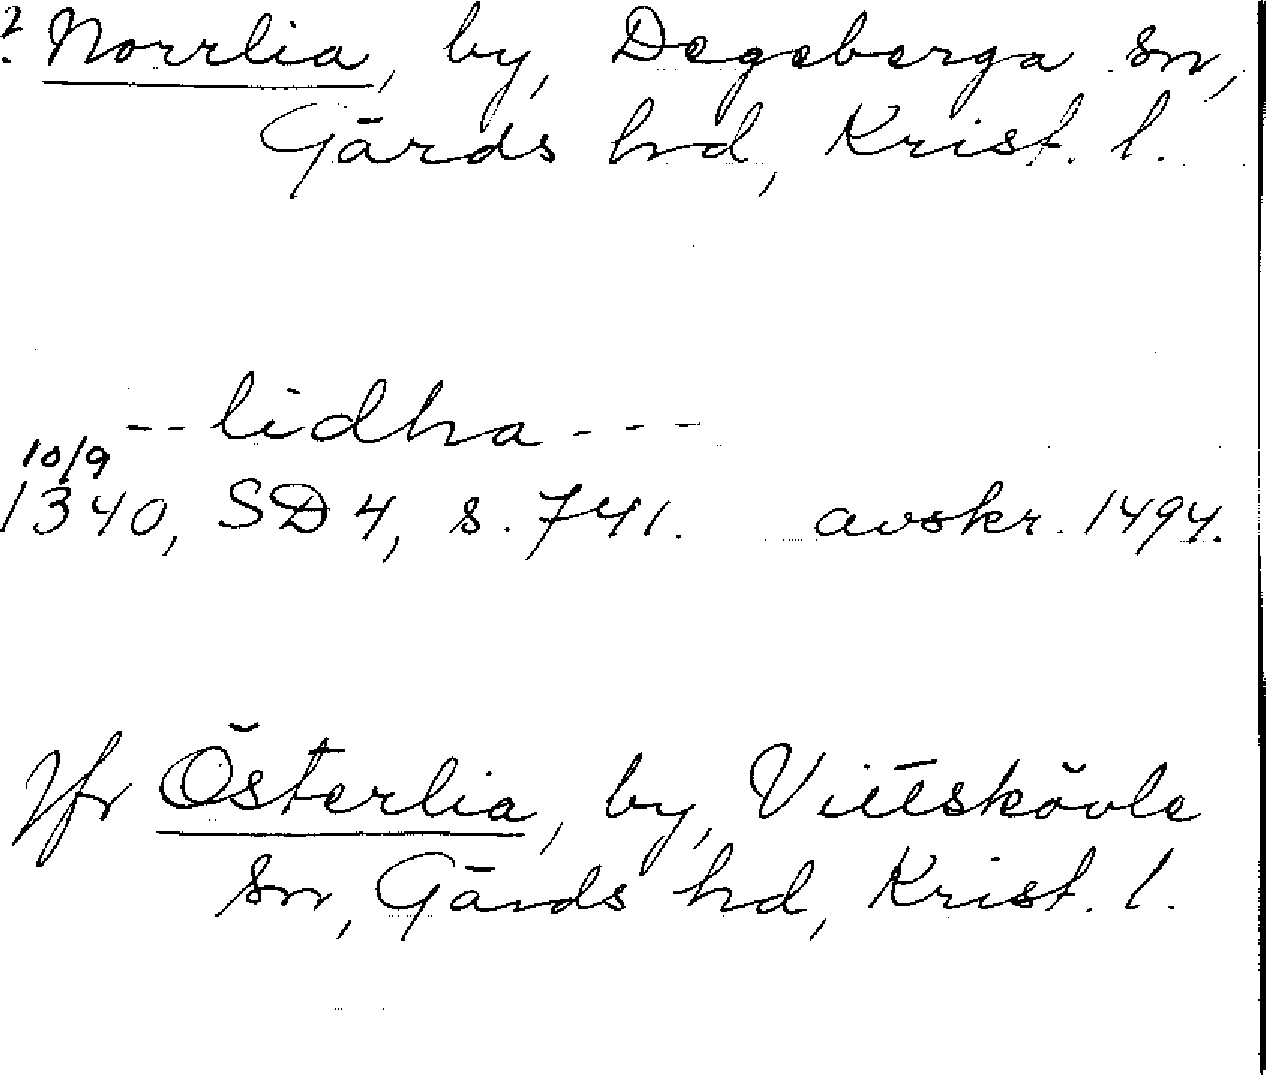 ? Norrlia, by, Degeberga sn,
Gärds hd, Krist. l.
--lidha---
10/9
1340, SD 4, s. 741. avskr. 1494.
Jfr Österlia, by, Vittskövle
sn, Gärds hd, Krist. l.